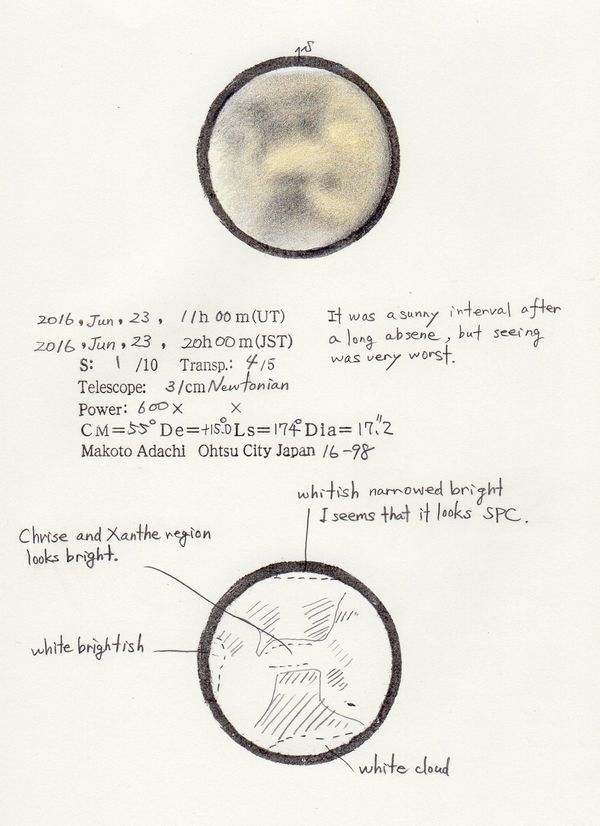 S
2016, Jun, 23, 11h 00m (UT)
2016, Jun, 23, 20h 00m (JST)
S: 1 /10 Transp.: 4/5
Telescope: 31cm Newtonian
Power: 600 × ×
CM=55° De=+15.0 Ls=174° Dia=17.″2
Makoto Adachi Ohtsu City Japan 16-98
It was a sunny interval after
a long absene, but seeing
was very worst.
whitish narrowed bright
I seems that it looks SPC.
Chrise and Xanthe region
looks bright.
white brightish
white cloud